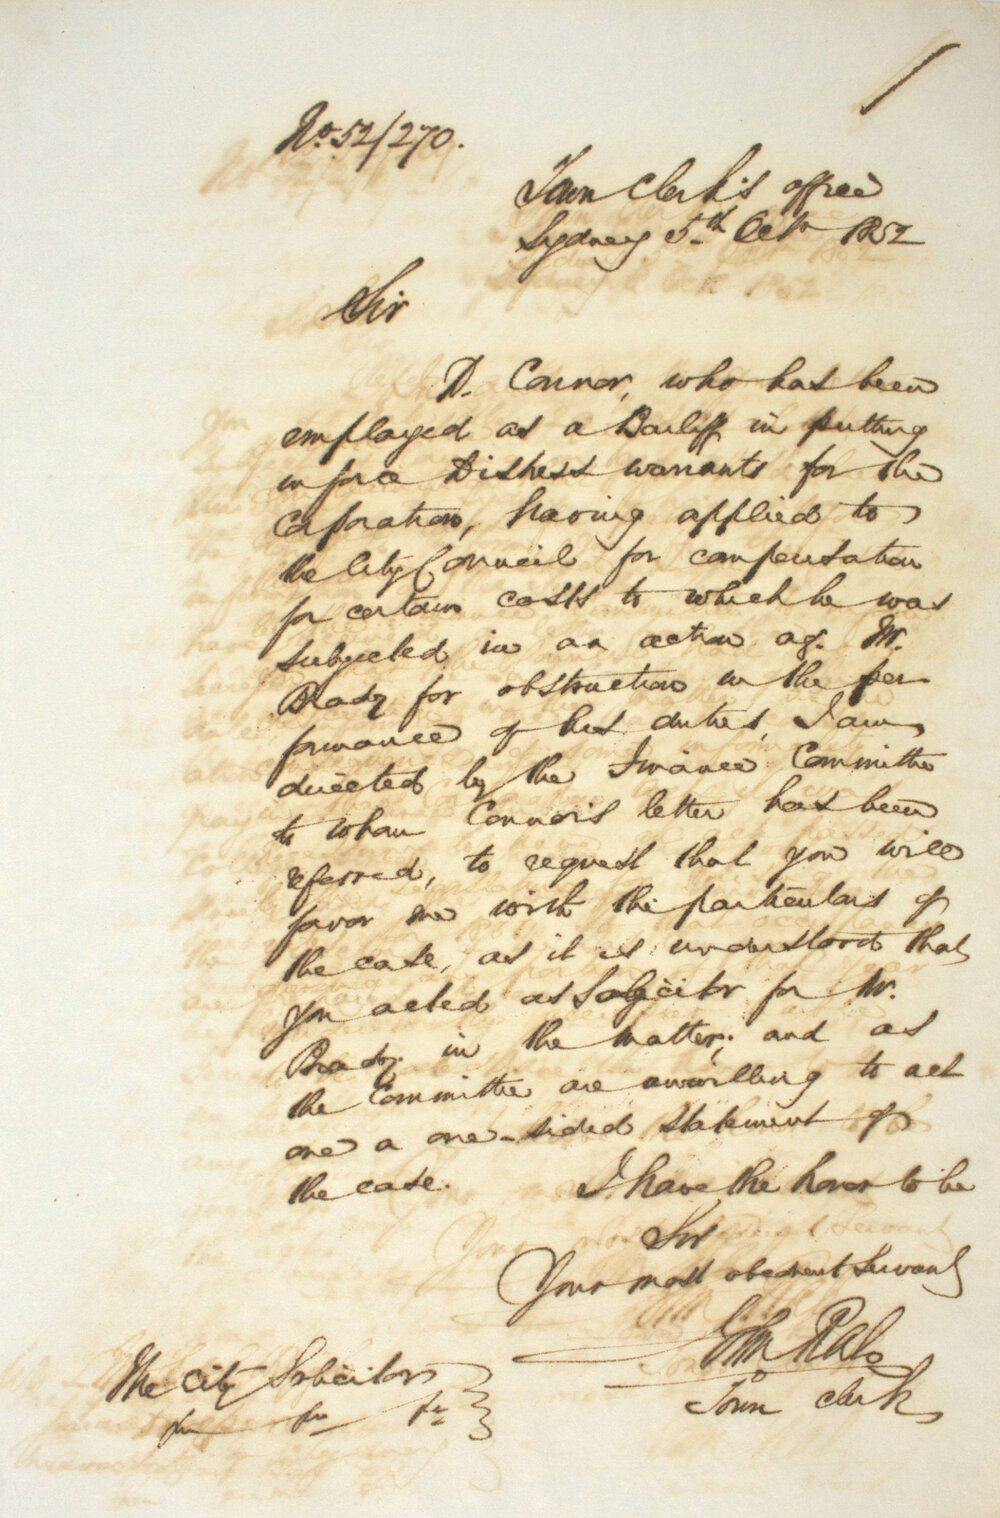 No. 52/270.
Town Clerk's office
Sydney 5th Octr 1852
Sir
D. Connor, who has been
employed as a Bailiff in putting
in force Distress warrants for the
Corporation, having applied to
the City Council for compensation
for certain costs to which he was
subjected in an action ag. Mr.
Brady for obstruction in the per
formance of his duties, I am
directed by the Finance Committee
to whom Connor's letter has been
referred, to request that you will
favor me with the particulars of
the case, as it is understood that
you acted as Solicitor for Mr.
Brady in the matter; and as
the Committee are unwilling to act
one a one-sided statement of
the case. I have the honor to be
Sir
Your most obedient Servant
John
Town Clerk
The City Solicitor